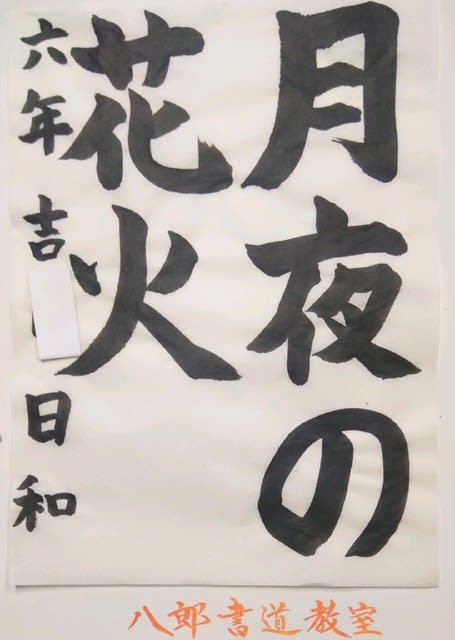 月夜の
花火
六年 吉 日和
八郎書道教室